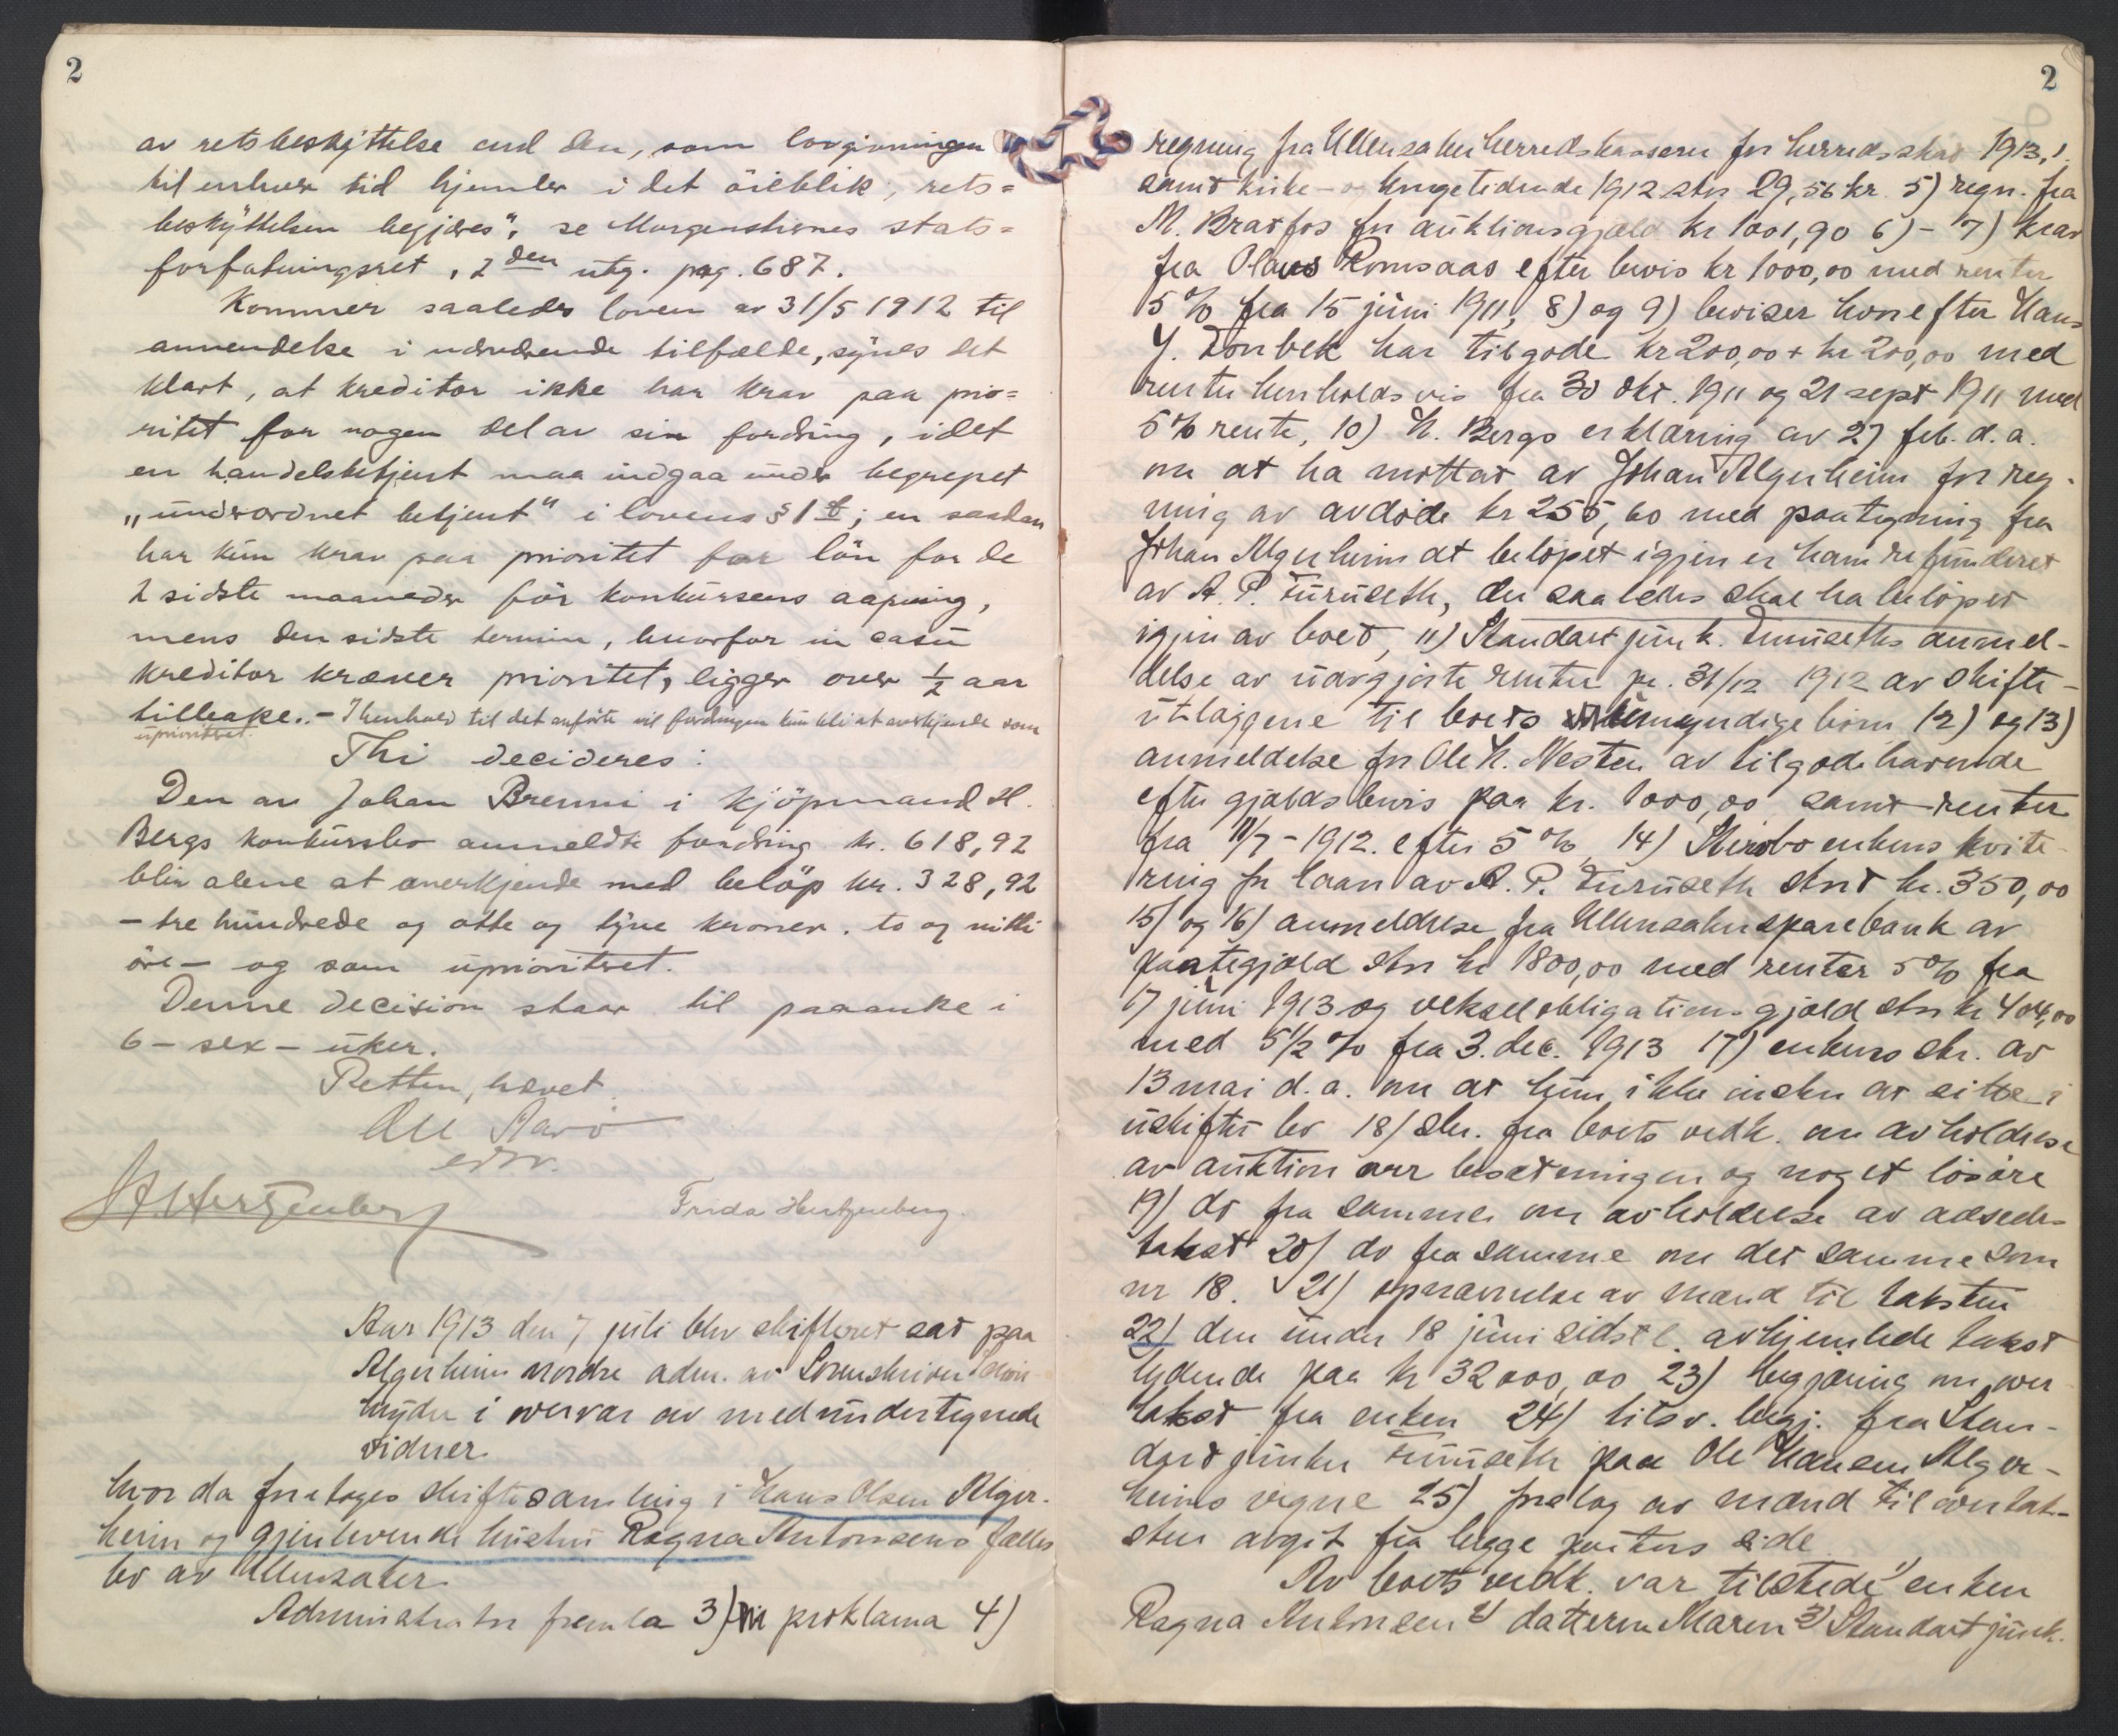 2
av retsbeskyttelse end den, som lovgivningen
til enhver tid hjemler i det öieblik, rets=
beskyttelsen begjæres", se Morgenstiernes stats=
forfatningsret, 2den utg. pag. 687.
Kommer saaledes loven av 31/5 1912 til
anvendelse i nærværende tilfælde, synes det
klart, at kreditor ikke har krav paa prio=
ritet for nogen del av sin fordring, idet
en handelsbetjent maa indgaa under begrepet
„underordnet betjent" i lovens § 1; en saadan
har kun krav paa prioritet for lön for de
2 sidste maaneder för konkursens aapning,
mens den sidste termin, hvorfor in casu
kreditor kræver prioritet, ligger over ½ aar
tilbake. - I henhold til det anförte vil fordringen kun bli at anerkjende som
uprioritert.
Thi decideres:
Den av Johan Brenni i kjöpmand H.
Bergs konkursbo anmeldte fordring kr. 618,92
blir alene at anerkjende med belöp kr. 328,92
- tre hundrede og otte og tyve kroner. to og nitti
öre - og som uprioritert.
Denne decision staar til paaanke i
6 - sex - uker.
Retten hævet.
edsv.
Frida Hertzenberg.
Aar 1913 den 7 juli blev skifteret sat paa
Algerheim nordre adm. av Sorenskriver
i overvær av medundertegnede
vidner.
hvor da foretoges skiftesamling i Hans Olsen Alger-
heim og gjenlevende hustru Ragna Antonsens fælles
bo av Ullensaker.
Administrator fremla 3) proklama 4)
2
regning fra Ullensaker herredskasserer for herredsskat 1913,
samt kirke- og tidende 1912 stor 29,56 kr. 5) regn. fra
M. Bratfos for auktionsgjæld kr 1001,90 6) - 7) krav
fra Olaus Romsaas efter bevis kr 1000,00 med renter
5 % fra 15 juni 1911, 8) og 9) beviser hvorefter Hans
Y. Donbek har tilgode kr 200,00 + kr 200,00 med
renter henholdsvis fra 30 okt. 1911 og 21 sept 1911 med
5 % rente, 10) H. Bergs erklæring av 27 feb. d.a.
om at ha mottat av Johan Algerheim for reg-
ning av avdöde kr 255,60 med paategning fra
Johan Algerheim at belöpet igjen er ham refunderet
av A. P. Furuseth, der saaledes skal ha belöpet
igjen av boet, 11) Standart junk. Furuseths anmel-
delse av uavgjorte renter pr. 31/12 1912 av skifte-
utlæggene til boets umyndige börn 12) og 13)
anmeldelse fra Ole H. Nesten av tilgodehavende
efter gjældsbevis paa kr. 1000,00 samt renter
fra 11/7 - 1912. efter 5 %, 14) enkens kvite-
ring for laan av A. P. Furuseth stort kr. 350,00
15) og 16) anmeldelse fra Ullensaker sparebank av
pantegjæld stor kr 1800,00 med renter 5 % fra
17 juni 1913 og vekselobligationsgjæld stor kr 404,00
med 5 1/2 % fra 3. dec. 1913 17) enkens skr. av
13 mai d.a. om at hun ikke önsker at sitte i
uskiftet bo 18) skr. fra boets vedk. om avholdelse
av auktion over besætningen og noget lösöre
19) do fra samme om avholdelse av odels-
takst 20) do fra samme om det samme som
nr 18. 21) opnævnelse av mænd til taksten
22) den under 18 juni sidstl. avhjemlede takst
lydende paa kr 32000,00 23) begjæring om over
takst fra enken 24) tilsv. begj. fra Stan-
dart junker Furuseth paa Ole Hansen Alger-
heims vegne 25) forslag av mænd til overtak-
sten avgit fra begge parters side.
Av boets vedk. var tilstede 1) enken
Ragna Antonsen 2) datteren Maren 3) Standart junk.